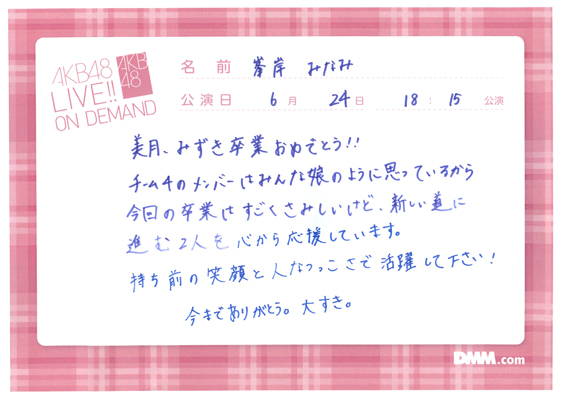 AKB48
LIVE!!
ON DEMAND
AKB
48
名前 峯岸 みなみ
公演日 6月 24日 18:15 公演
美月、みずき卒業おめでとう!!
チーム4のメンバーはみんな娘のように思っているから
今回の卒業はすごくさみしいけど、新しい道に
進む2人を心から応援しています。
持ち前の笑顔と人なつっこさで活躍して下さい!
今までありがとう。大すき。
DMM.com